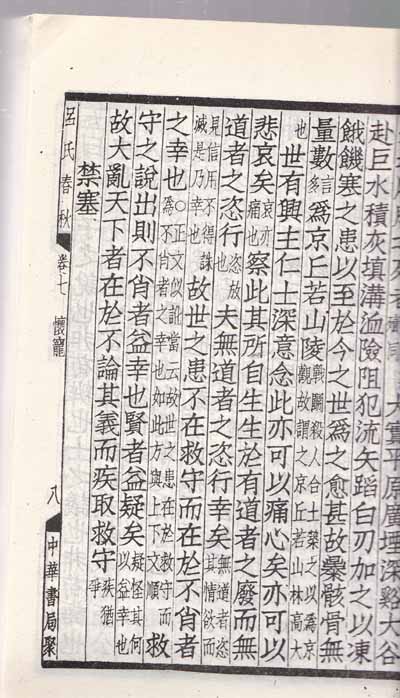 大實平原廣堙深谿大谷
赴巨水積灰填溝洫險阻犯流矢蹈白刃加之以凍
餓饑寒之患以至於今之世爲之愈甚故暴骸骨無
量數言多爲京丘若山陵戰鬭殺人合土築之以爲京觀故謂之京丘若山林高大
也世有興主仁士深意念此亦可以痛心矣亦可以
悲哀矣哀亦痛也察此其所自生生於有道者之廢而無
道者之恣行恣放也夫無道者之恣行幸矣無道者恣其情欲而
見信用不得誅滅是乃幸也故世之患不在救守而在於不肖者
之幸也○正文似訛當云故世之患在於救守而爲不肖者之幸也如此方與上下文順救
守之說出則不肖者益幸也賢者益疑矣疑怪其何以益幸也
故大亂天下者在於不論其義而疾取救守疾猶爭
禁塞
呂氏春秋 卷七 懷寵 八 中華書局聚